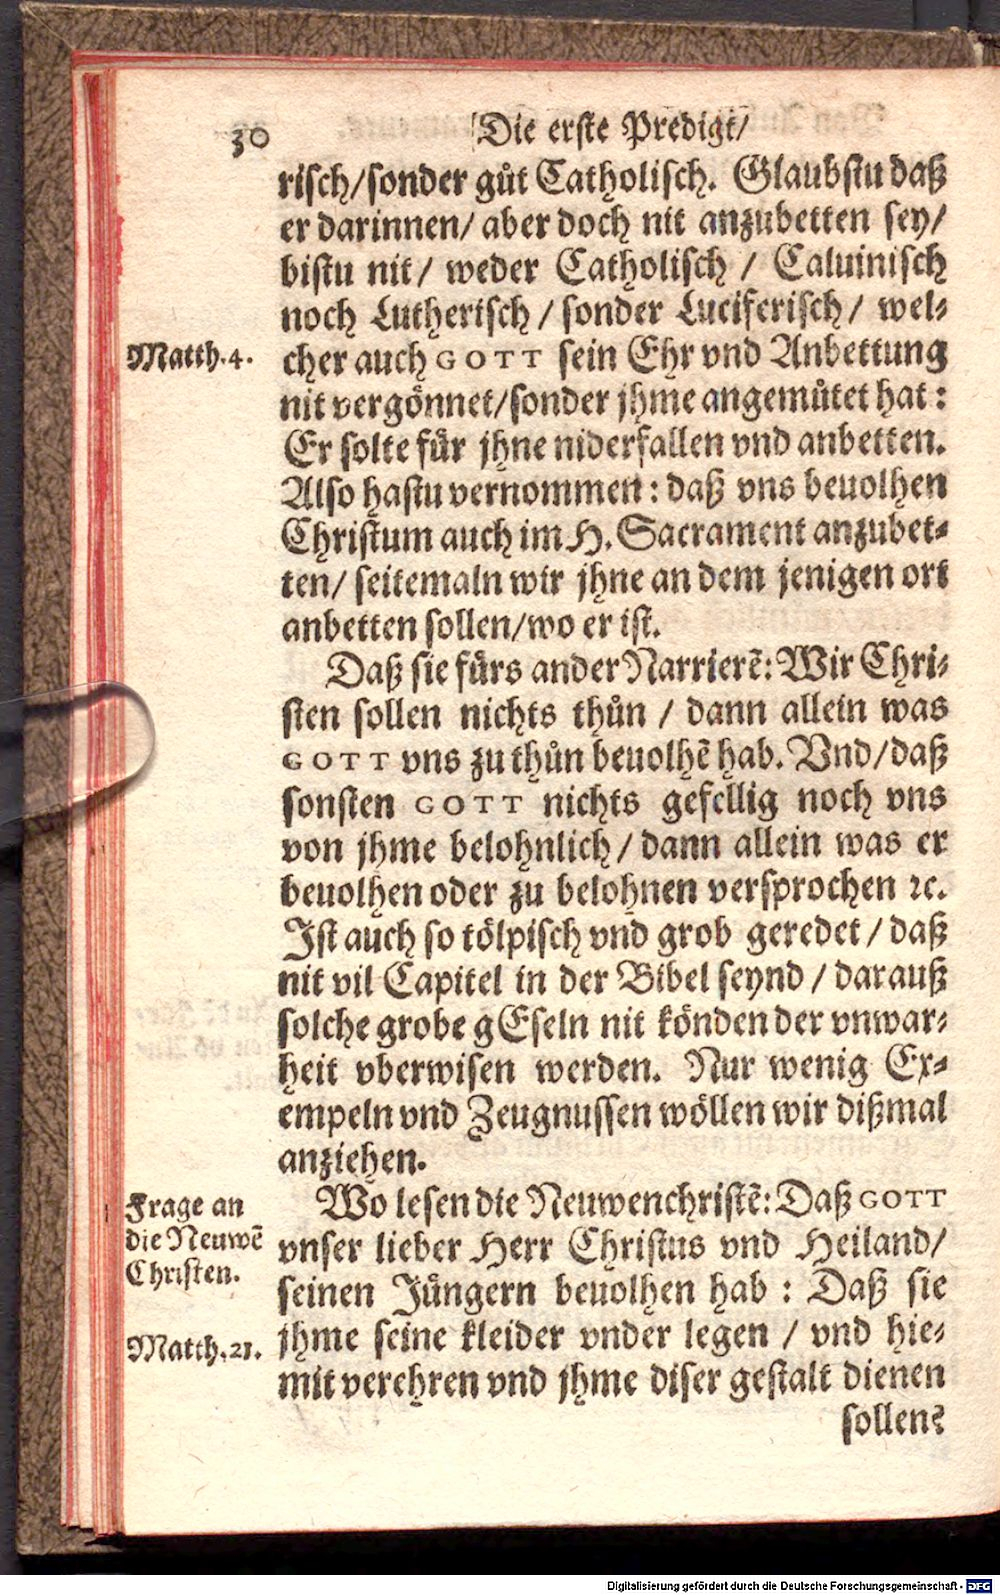 30 Die erste Predigt/
risch/sonder gůt Catholisch. Glaubstu daß
er darinnen/ aber doch nit anzubetten sey/
bistu nit/ weder Catholisch / Caluinisch
noch Lutherisch / sonder Luciferisch / wel-
Matth.4.
cher auch GOTT sein Ehr vnd Anbettung
nit vergönnet/sonder jhme angemůtet hat:
Er solte für jhne niderfallen vnd anbetten.
Also hastu vernommen: daß vns beuolhen
Christum auch im H. Sacrament anzubet-
ten/ seitemaln wir jhne an dem jenigen ort
anbetten sollen/wo er ist.
Daß sie fürs ander Narrierẽ: Wir Chri-
sten sollen nichts thůn / dann allein was
GOTT vns zu thůn beuolhẽ hab. Vnd/daß
sonsten GOTT nichts gefellig noch vns
von jhme belohnlich / dann allein was er
beuolhen oder zu belohnen versprochen ꝛc.
Ist auch so tölpisch vnd grob geredet / daß
nit vil Capitel in der Bibel seynd / darauß
solche grobe gEseln nit könden der vnwar-
heit vberwisen werden. Nur wenig Ex-
empeln vnd Zeugnussen wöllen wir dißmal
anziehen.
Frage an
die Neuwẽ
Christen.
Wo lesen die Neuwenchristẽ: Daß GOTT
vnser lieber Herr Christus vnd Heiland/
seinen Jüngern beuolhen hab : Daß sie
Matth.21.
jhme seine kleider vnder legen / vnd hie-
mit verehren vnd jhme diser gestalt dienen
sollen?
Digitalisierung gefördert durch die Deutsche Forschungsgemeinschaft - DFG